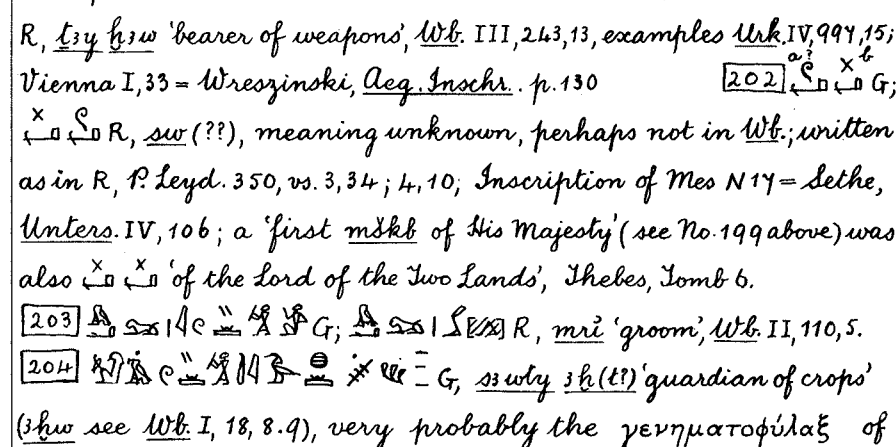 R, ṯꜣy ḫꜣw ‘bearer of weapons’, Wb. III, 243, 13, examples Urk. IV, 994, 15;
Vienna I, 33 = Wreszinski, Aeg. Inschr. . p. 130 202 a? b G;
R, sw (??), meaning unknown, perhaps not in Wb.; written
as in R, P. Leyd. 350, vs. 3, 34; 4, 10; Inscription of Mes N 14 = Sethe,
Unters. IV, 106; a ‘first mškb of His Majesty’ (see No. 199 above) was
also ‘of the Lord of the Two Lands’, Thebes, Tomb 6.
203 G; R, mri ‘groom’, Wb. II, 110, 5.
204 G, sꜣwty ꜣḫ(t?) ‘guardian of crops’
(ꜣḫw see Wb. I, 18, 8. 9), very probably the γενηματοφύλαξ of